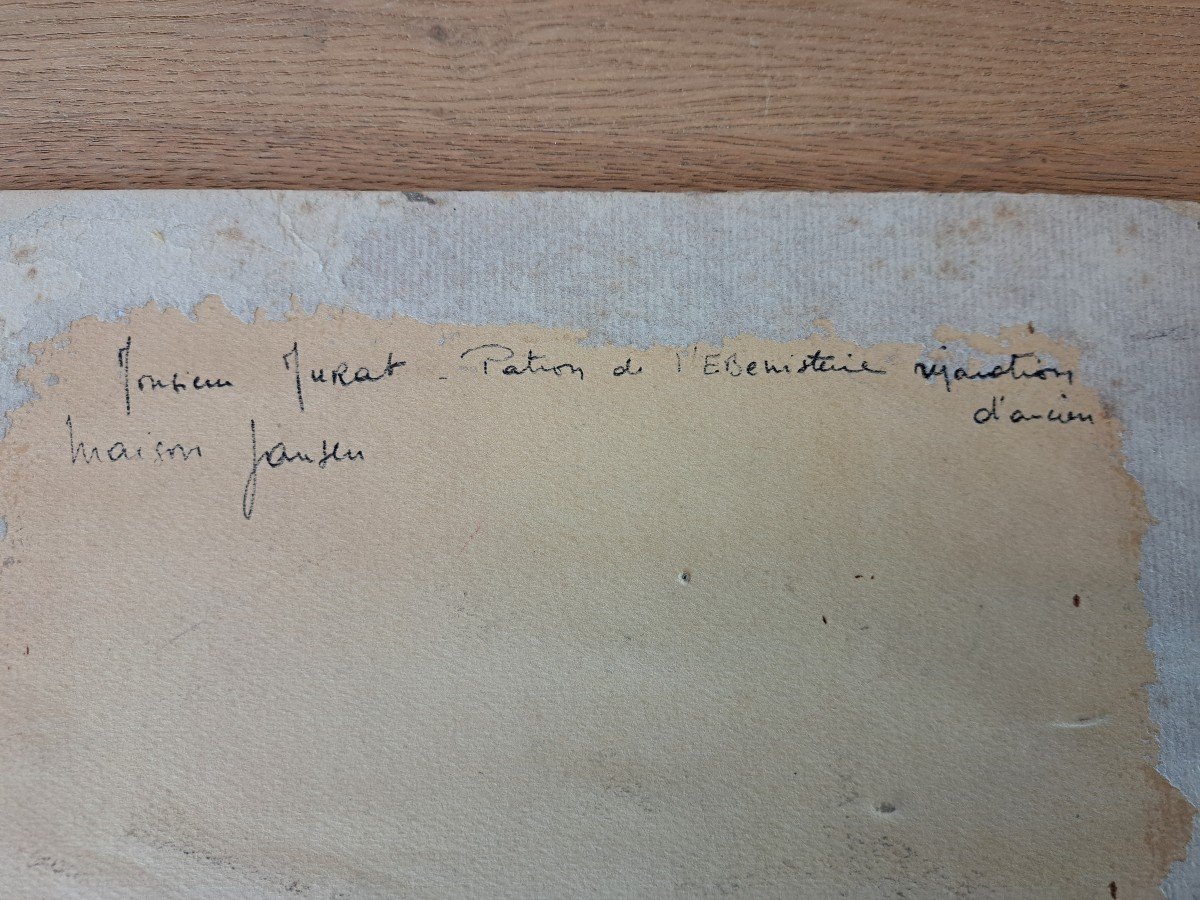 Monsieur JURAT - Patron de l'EBenisterie réparation
d'ancien
Maison Jansen